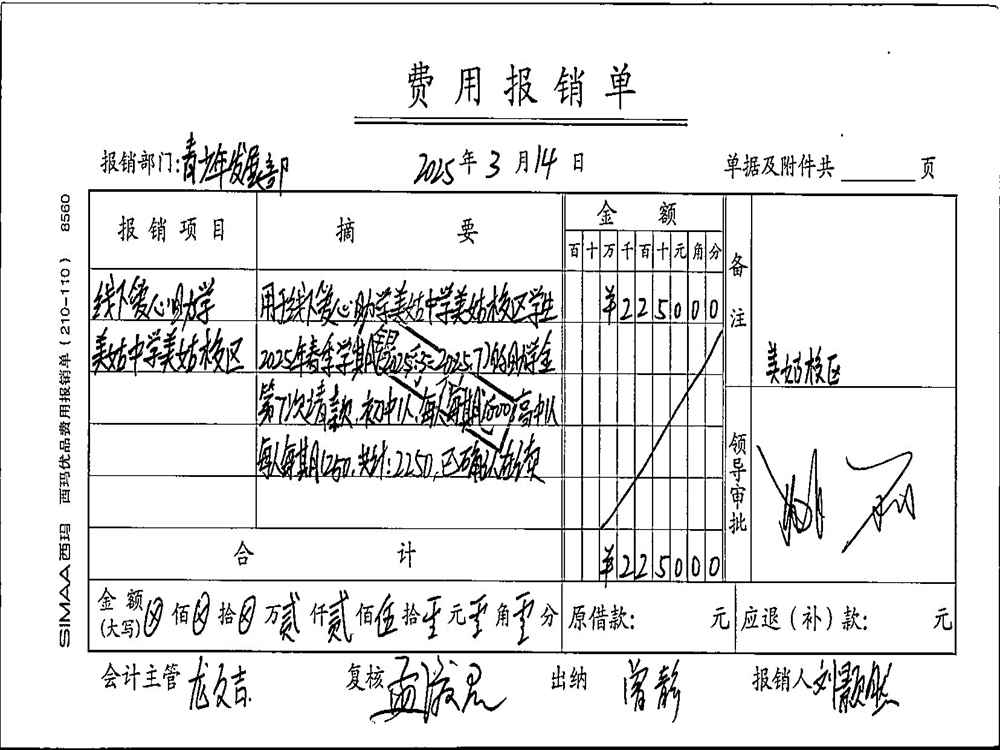 费用报销单
报销部门:青少年发展部 2025年3月14日 单据及附件共 页
报销项目 摘要 金额 备注
百十万千百十元角分
线下爱心助学 用于线下爱心助学美姑中学美姑校区学生 ¥225000
美姑中学美姑校区 2025年春季学期(2025.3-2025.7)的助学金 美姑校区
第1次请款,初中1人,每人每期1000;高中1人
每人每期1250,共计:2250,已确认在读
领导审批
合计 ¥225000
金额(大写)⊗佰⊗拾⊗万贰仟贰佰伍拾零元零角零分 原借款: 元 应退(补)款: 元
会计主管 龙文吉 复核 出纳 曾静 报销人 刘颢然
SIMAA西玛 西玛优品费用报销单(210-110) 8560